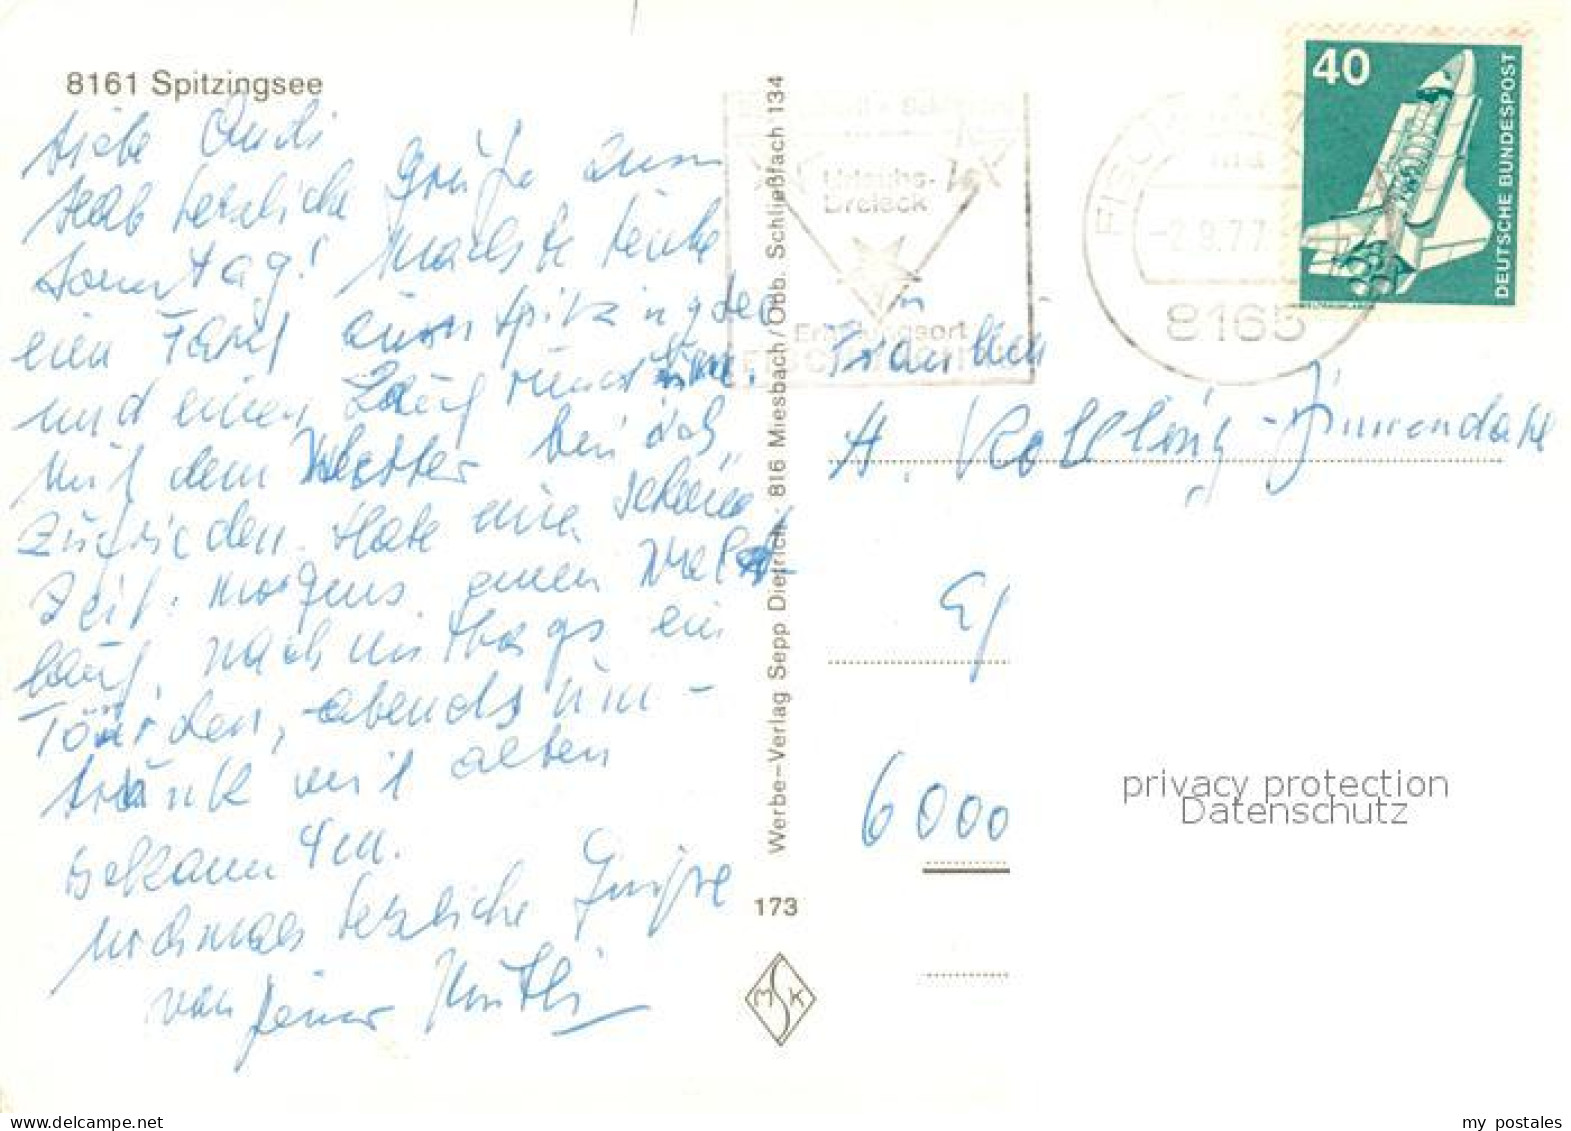 8161 Spitzingsee
Liebe Andi
Hab herzliche Grüße zum
Sonntag! Machte heute
eine Fahrt zum Spitzingsee
und einen Lauf rundherum.
Mit dem Wetter bin ich
zufrieden. Habe eine schöne
Zeit. Morgens einen Wald-
lauf, nachmittags ein
abends um-
trunk mit alten
Bekannten.
Nochmals herzliche Grüße
von Deiner
Werbe-Verlag Sepp Dietrich 816 Miesbach/Obb. Schließfach 134
173
MSK
Urlaubs-
Dreieck
Erholungsort
-2.9.77
8165
40
DEUTSCHE BUNDESPOST
Fräulein
A.
6000
privacy protection
Datenschutz
my postales